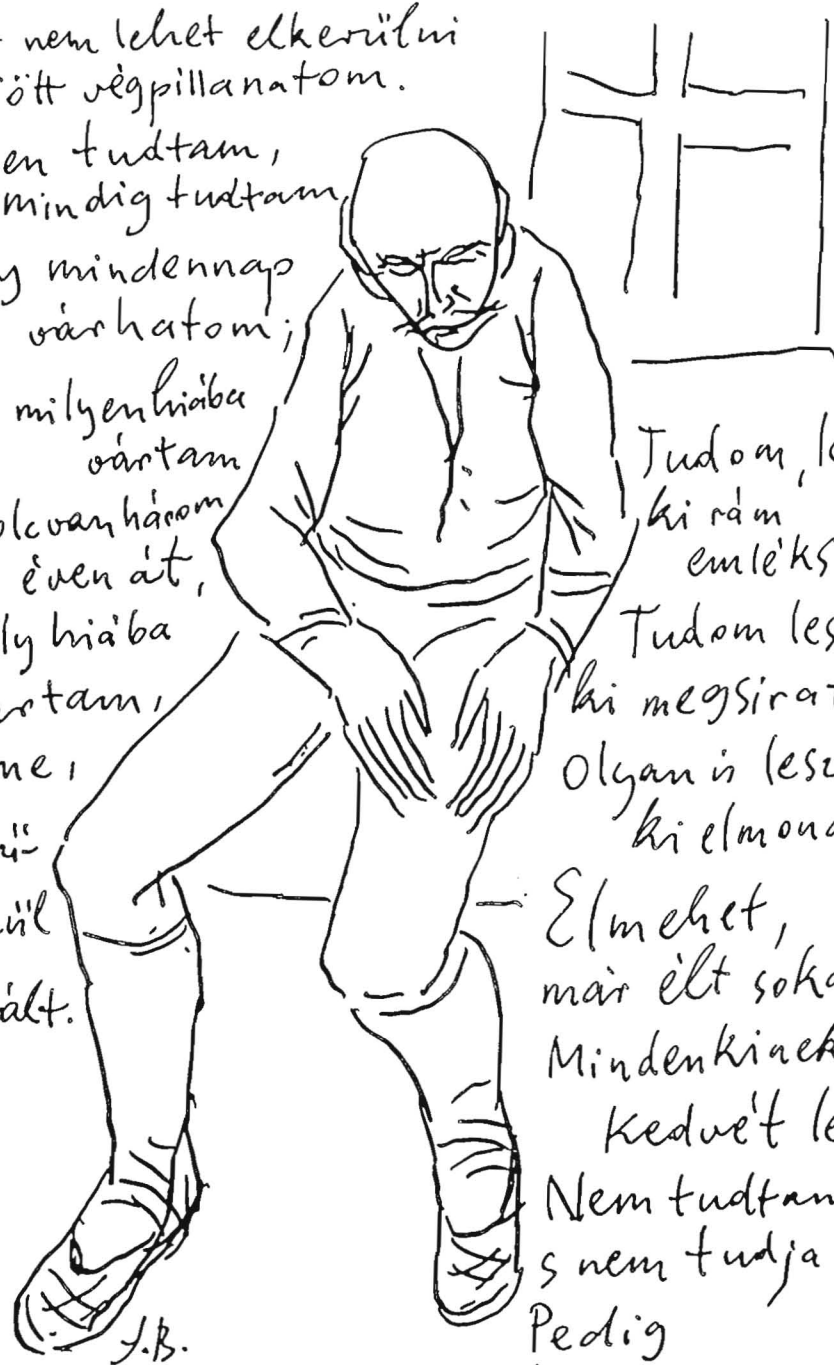 nem lehet elkerülni
ött végpillanatom.
en tudtam,
mindig tudtam,
y mindennap
várhatom;
milyen hiába
vártam
olcvanhárom
éven át,
ly hiába
rtam,
me,
ü-
ül
ált.
Tudom, le
ki rám
emléks
Tudom les
ki megsirat
Olyan is lesz
ki elmond
Elmehet,
már élt soka
Mindenkinek
kedvét le
Nem tudtam
s nem tudja
Pedig
J.B.